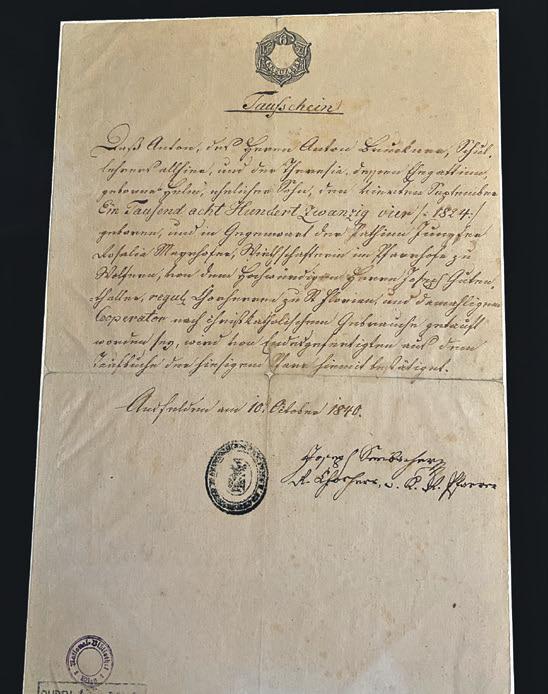 Taufschein
Daß Anton, des Herrn Anton Bruckner, Schul,
lehrers allhier, und der Theresia, dessen Ehegattinn,
geborne Helm, ehelicher Sohn, den vierten September
Ein Tausend acht Hundert zwanzig vier /: 1824 :/
geboren, und in Gegenwart der Pathinn Jungfer
Rosalia Mayrhofer, Wirthschafterin im Pfarrhofe zu
Wolfern, von dem Hochwürdigen Herrn Joseph Guten,
thaller, regul. Chorherrn zu St Florian, und damahligen
Cooperator nach christkatholischem Gebrauche getauft
worden sey, wird von Endesgefertigten aus dem
Taufbuche der hiesigen Pfarr hiemit bestätiget.
Ansfelden am 10. October 1840.
Joseph
R. Chorherr, u. Pfarrer
National-Bibliothek